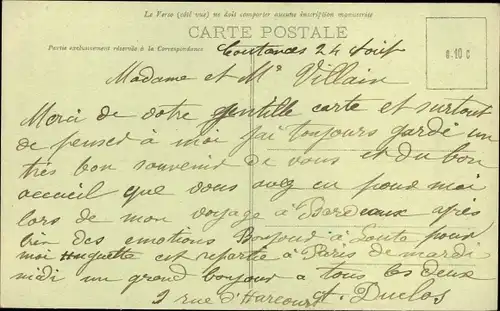 Le Verso (côté vue) ne doit comporter aucune inscription manuscrite
CARTE POSTALE
Partie exclusivement réservée à la Correspondance
0.10 c
Coutances 24 Aout
Madame et Mr Villain
Merci de votre gentille carte et surtout
de penser à moi j'ai toujours gardé un
très bon souvenir de vous et du bon
accueil que vous avez eu pour moi
lors de mon voyage à Bordeaux après
bien des emotions Bonjour à pour
moi Huguette est repartie à Paris de mardi
midi un grand bonjour a tous les deux
9 rue d'Harcourt. Duclos